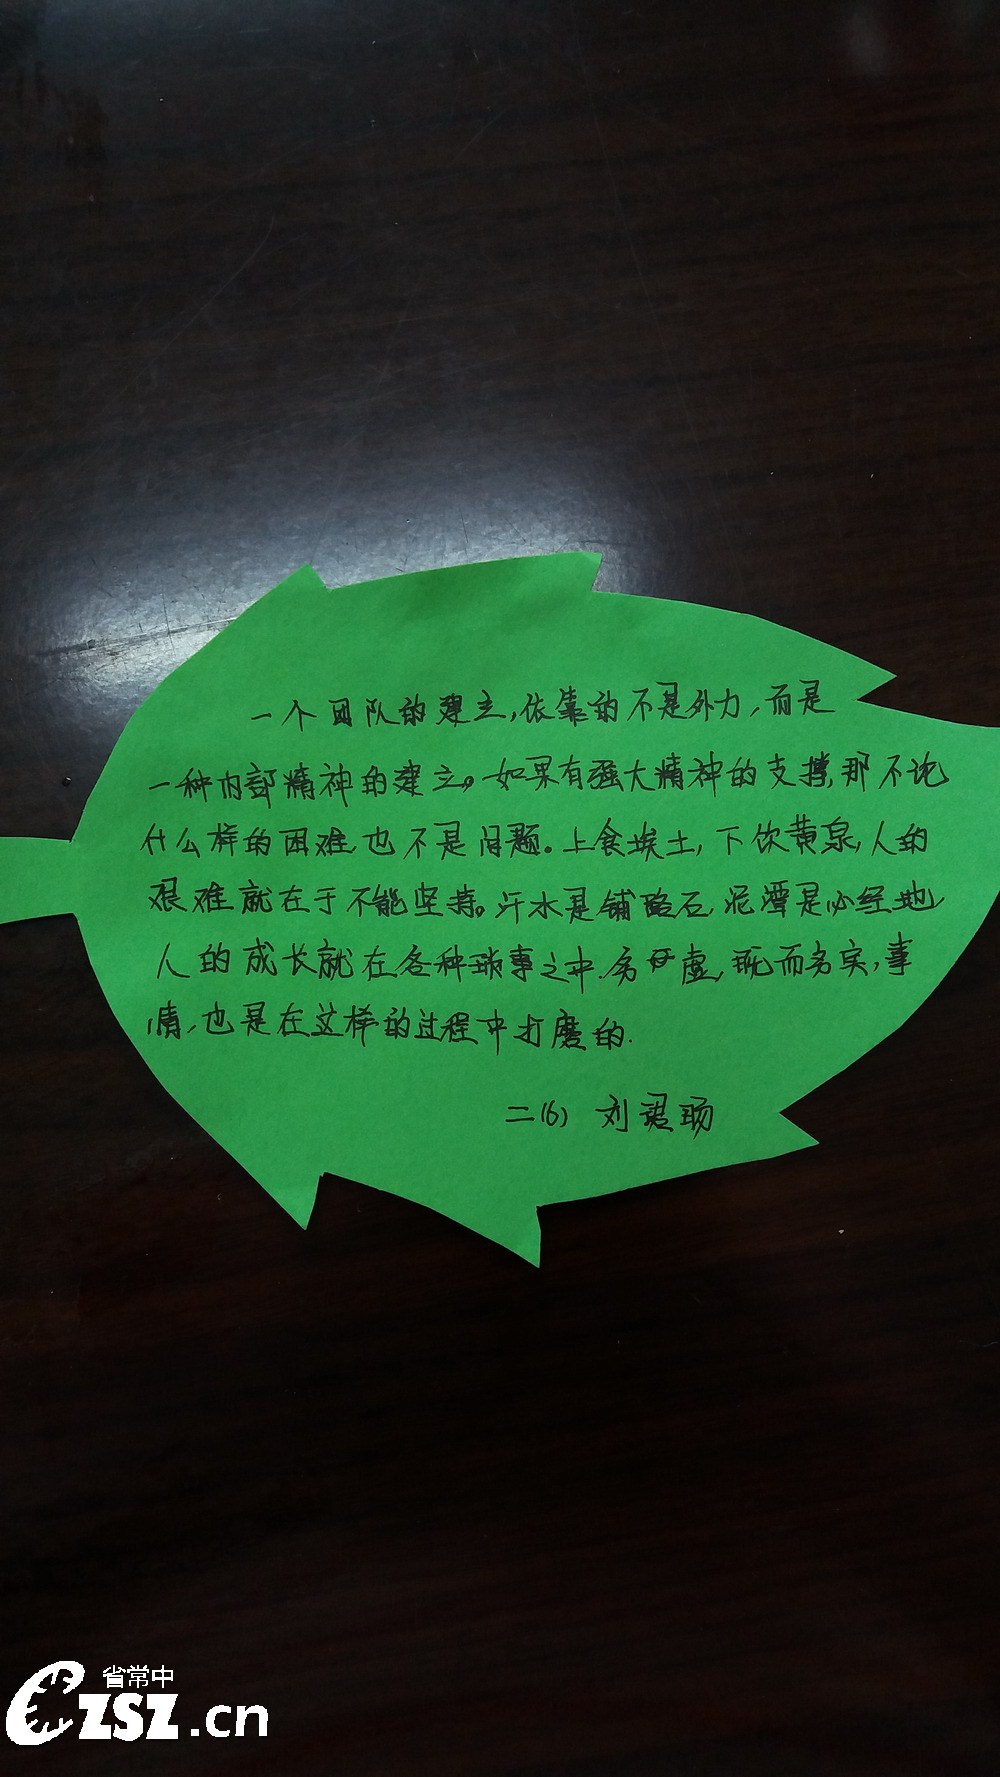 一个团队的建立,依靠的不是外力,而是
一种内部精神的建立。如果有强大精神的支撑,那不论
什么样的困难,也不是问题。上食埃土,下饮黄泉,人的
艰难就在于不能坚持。汗水是铺路石,泥潭是必经地,
人的成长就在各种琐事之中.务虚,既而务实,事
情,也是在这样的过程中打磨的.
二(6) 刘珺玚
省常中
CZSZ.cn